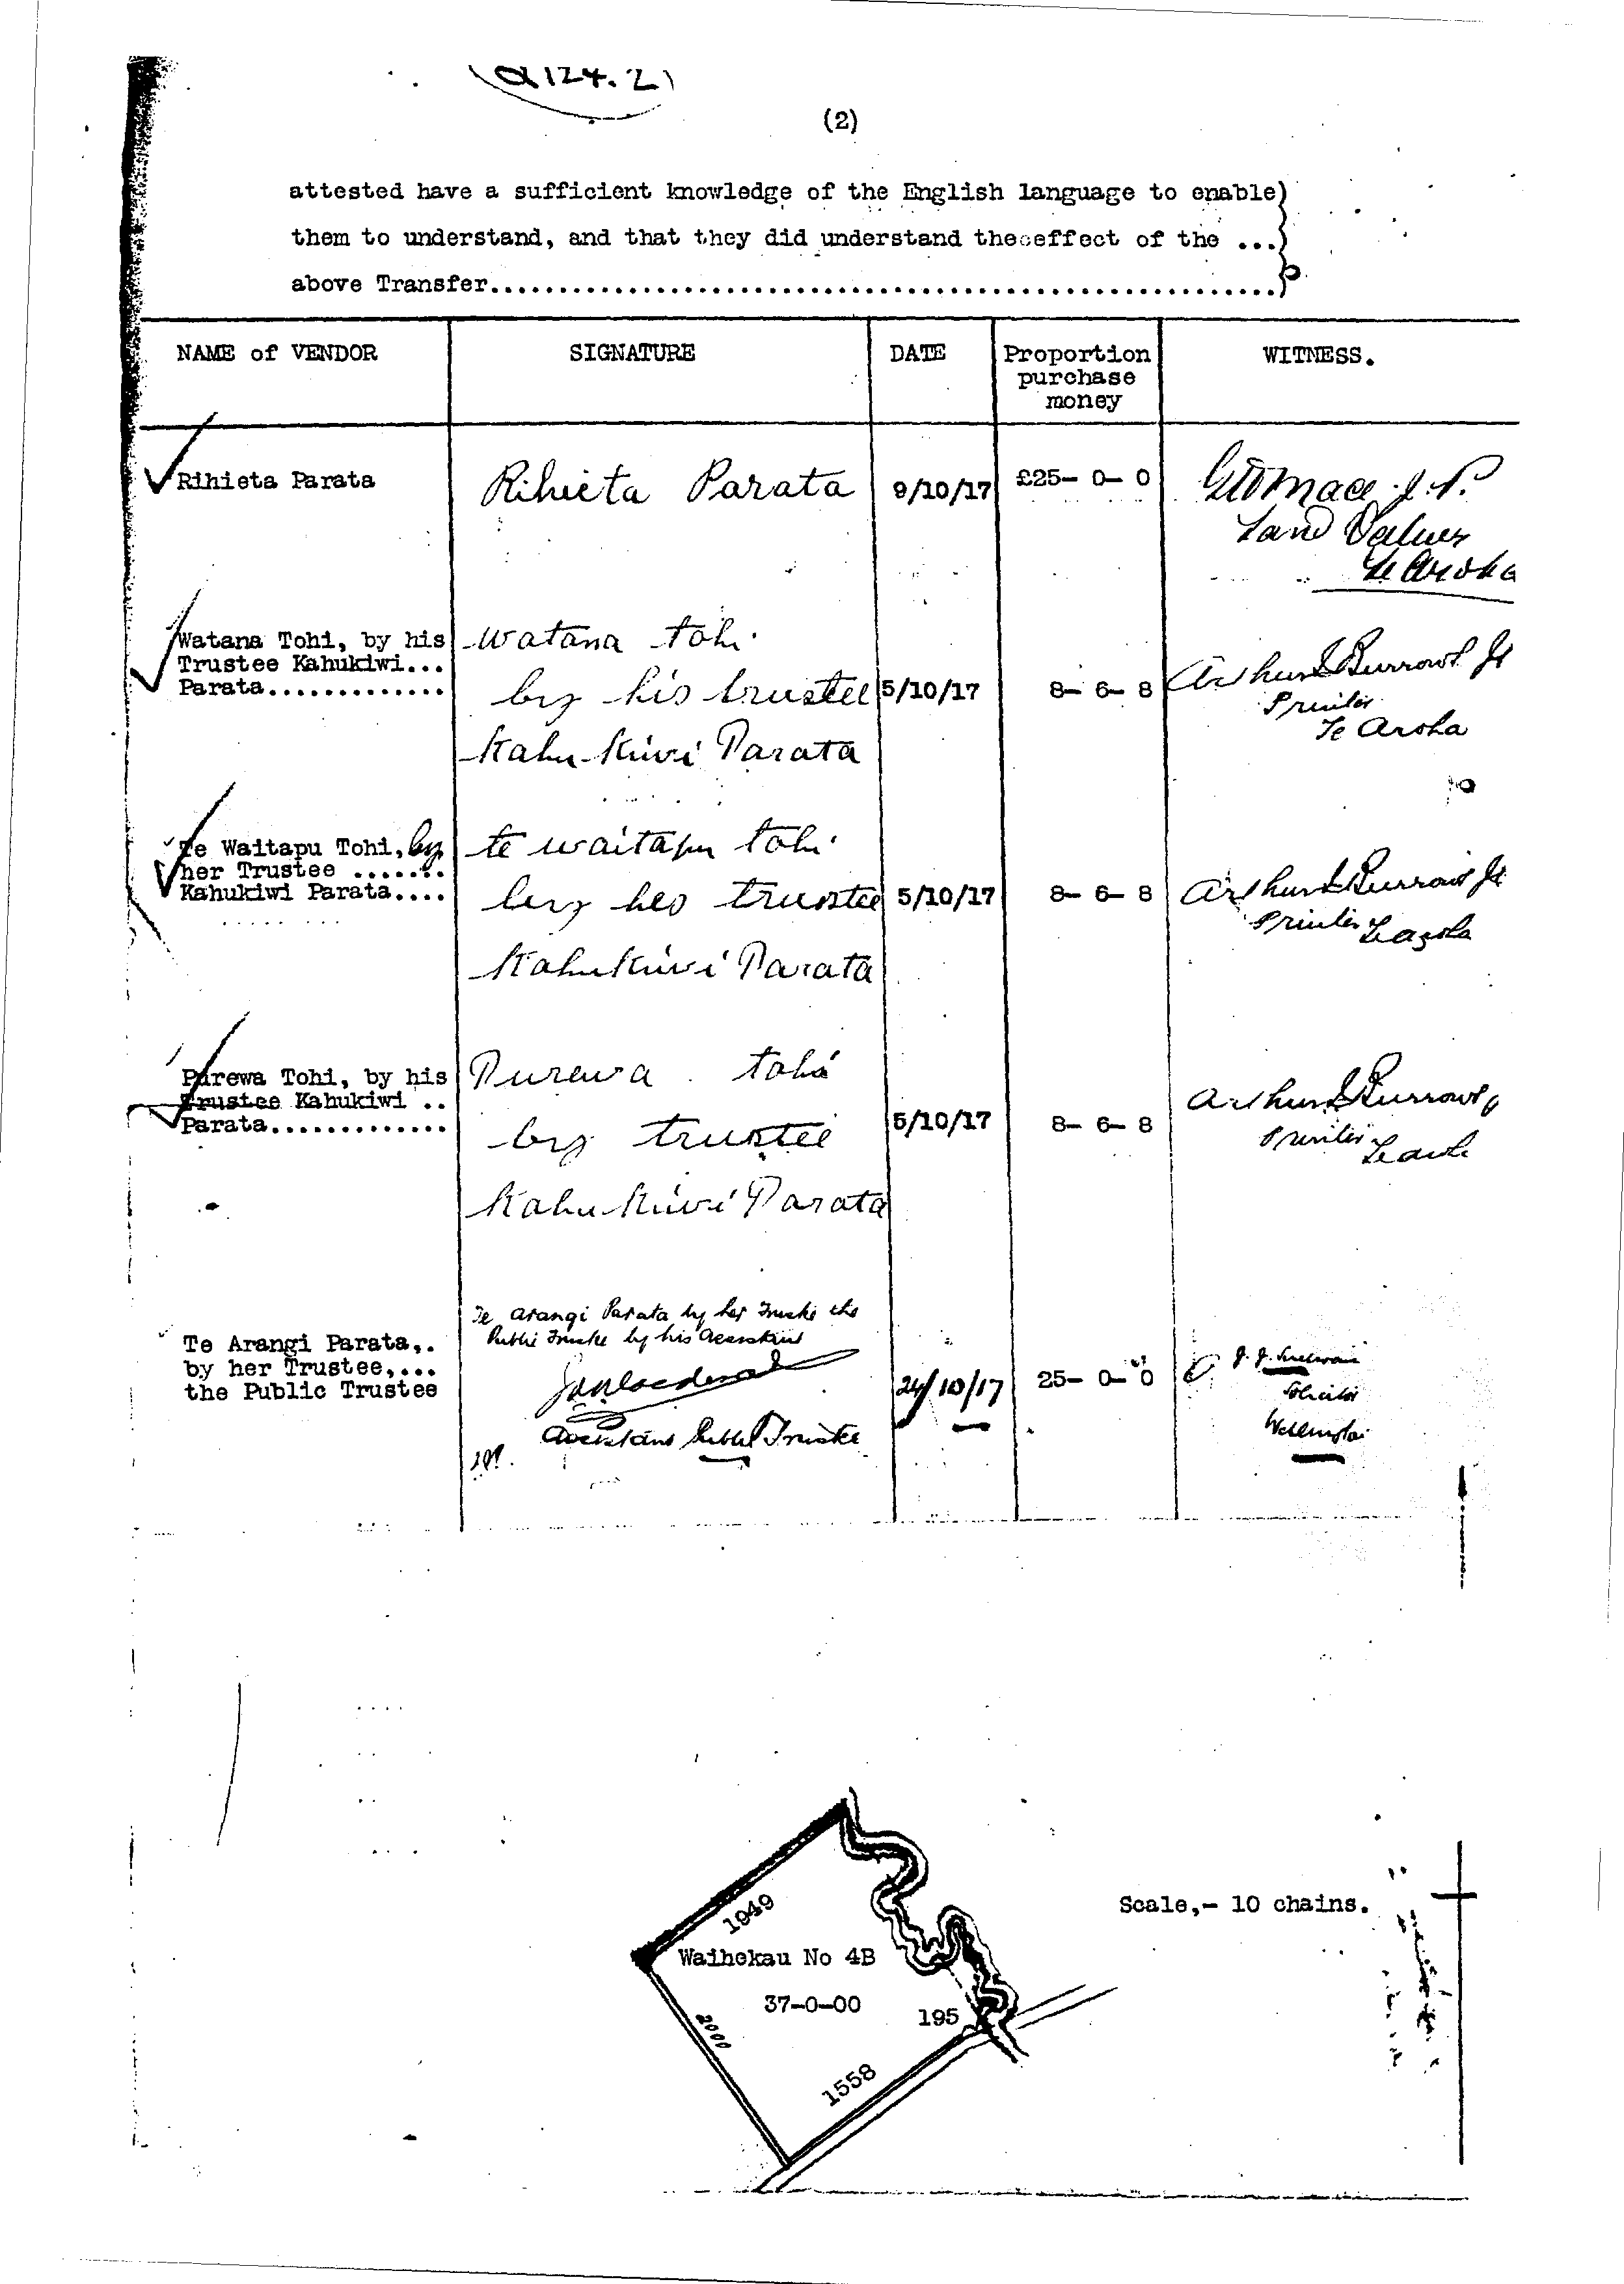 (2)
attested have a sufficient knowledge of the English language to enable)
them to understand, and that they did understand the effect of the ...)
above Transfer..........................................................)
NAME of VENDOR SIGNATURE DATE Proportion purchase money WITNESS.
Rihieta Parata Rihieta Parata 9/10/17 £25- 0- 0 J.P.
Land Valuer
Te Aroha
Watana Tohi, by his
Trustee Kahukiwi...
Parata.............
Watana tohi
by his trustee
Kahu Kiwi Parata
5/10/17
8- 6- 8
Arthur Burrows Jr
Printer
Te Aroha
Te Waitapu Tohi, by
her Trustee .......
Kahukiwi Parata....
te waitapu tohi
by her trustee
Kahukiwi Parata
5/10/17
8- 6- 8
Arthur Burrows Jr
Printer
Te Aroha
Purewa Tohi, by his
Trustee Kahukiwi ..
Parata.............
Purewa tohi
by trustee
Kahu Kiwi Parata
5/10/17
8- 6- 8
Arthur Burrows
Printer
Te Aroha
Te Arangi Parata,.
by her Trustee,...
the Public Trustee
Te Arangi Parata by her Trustee the
Public Trustee by his Assistant
Assistant Public Trustee
24/10/17
25- 0- 0
Solicitor
Wellington
Scale,- 10 chains.
1949
Waihekau No 4B
37-0-00
195
2000
1558